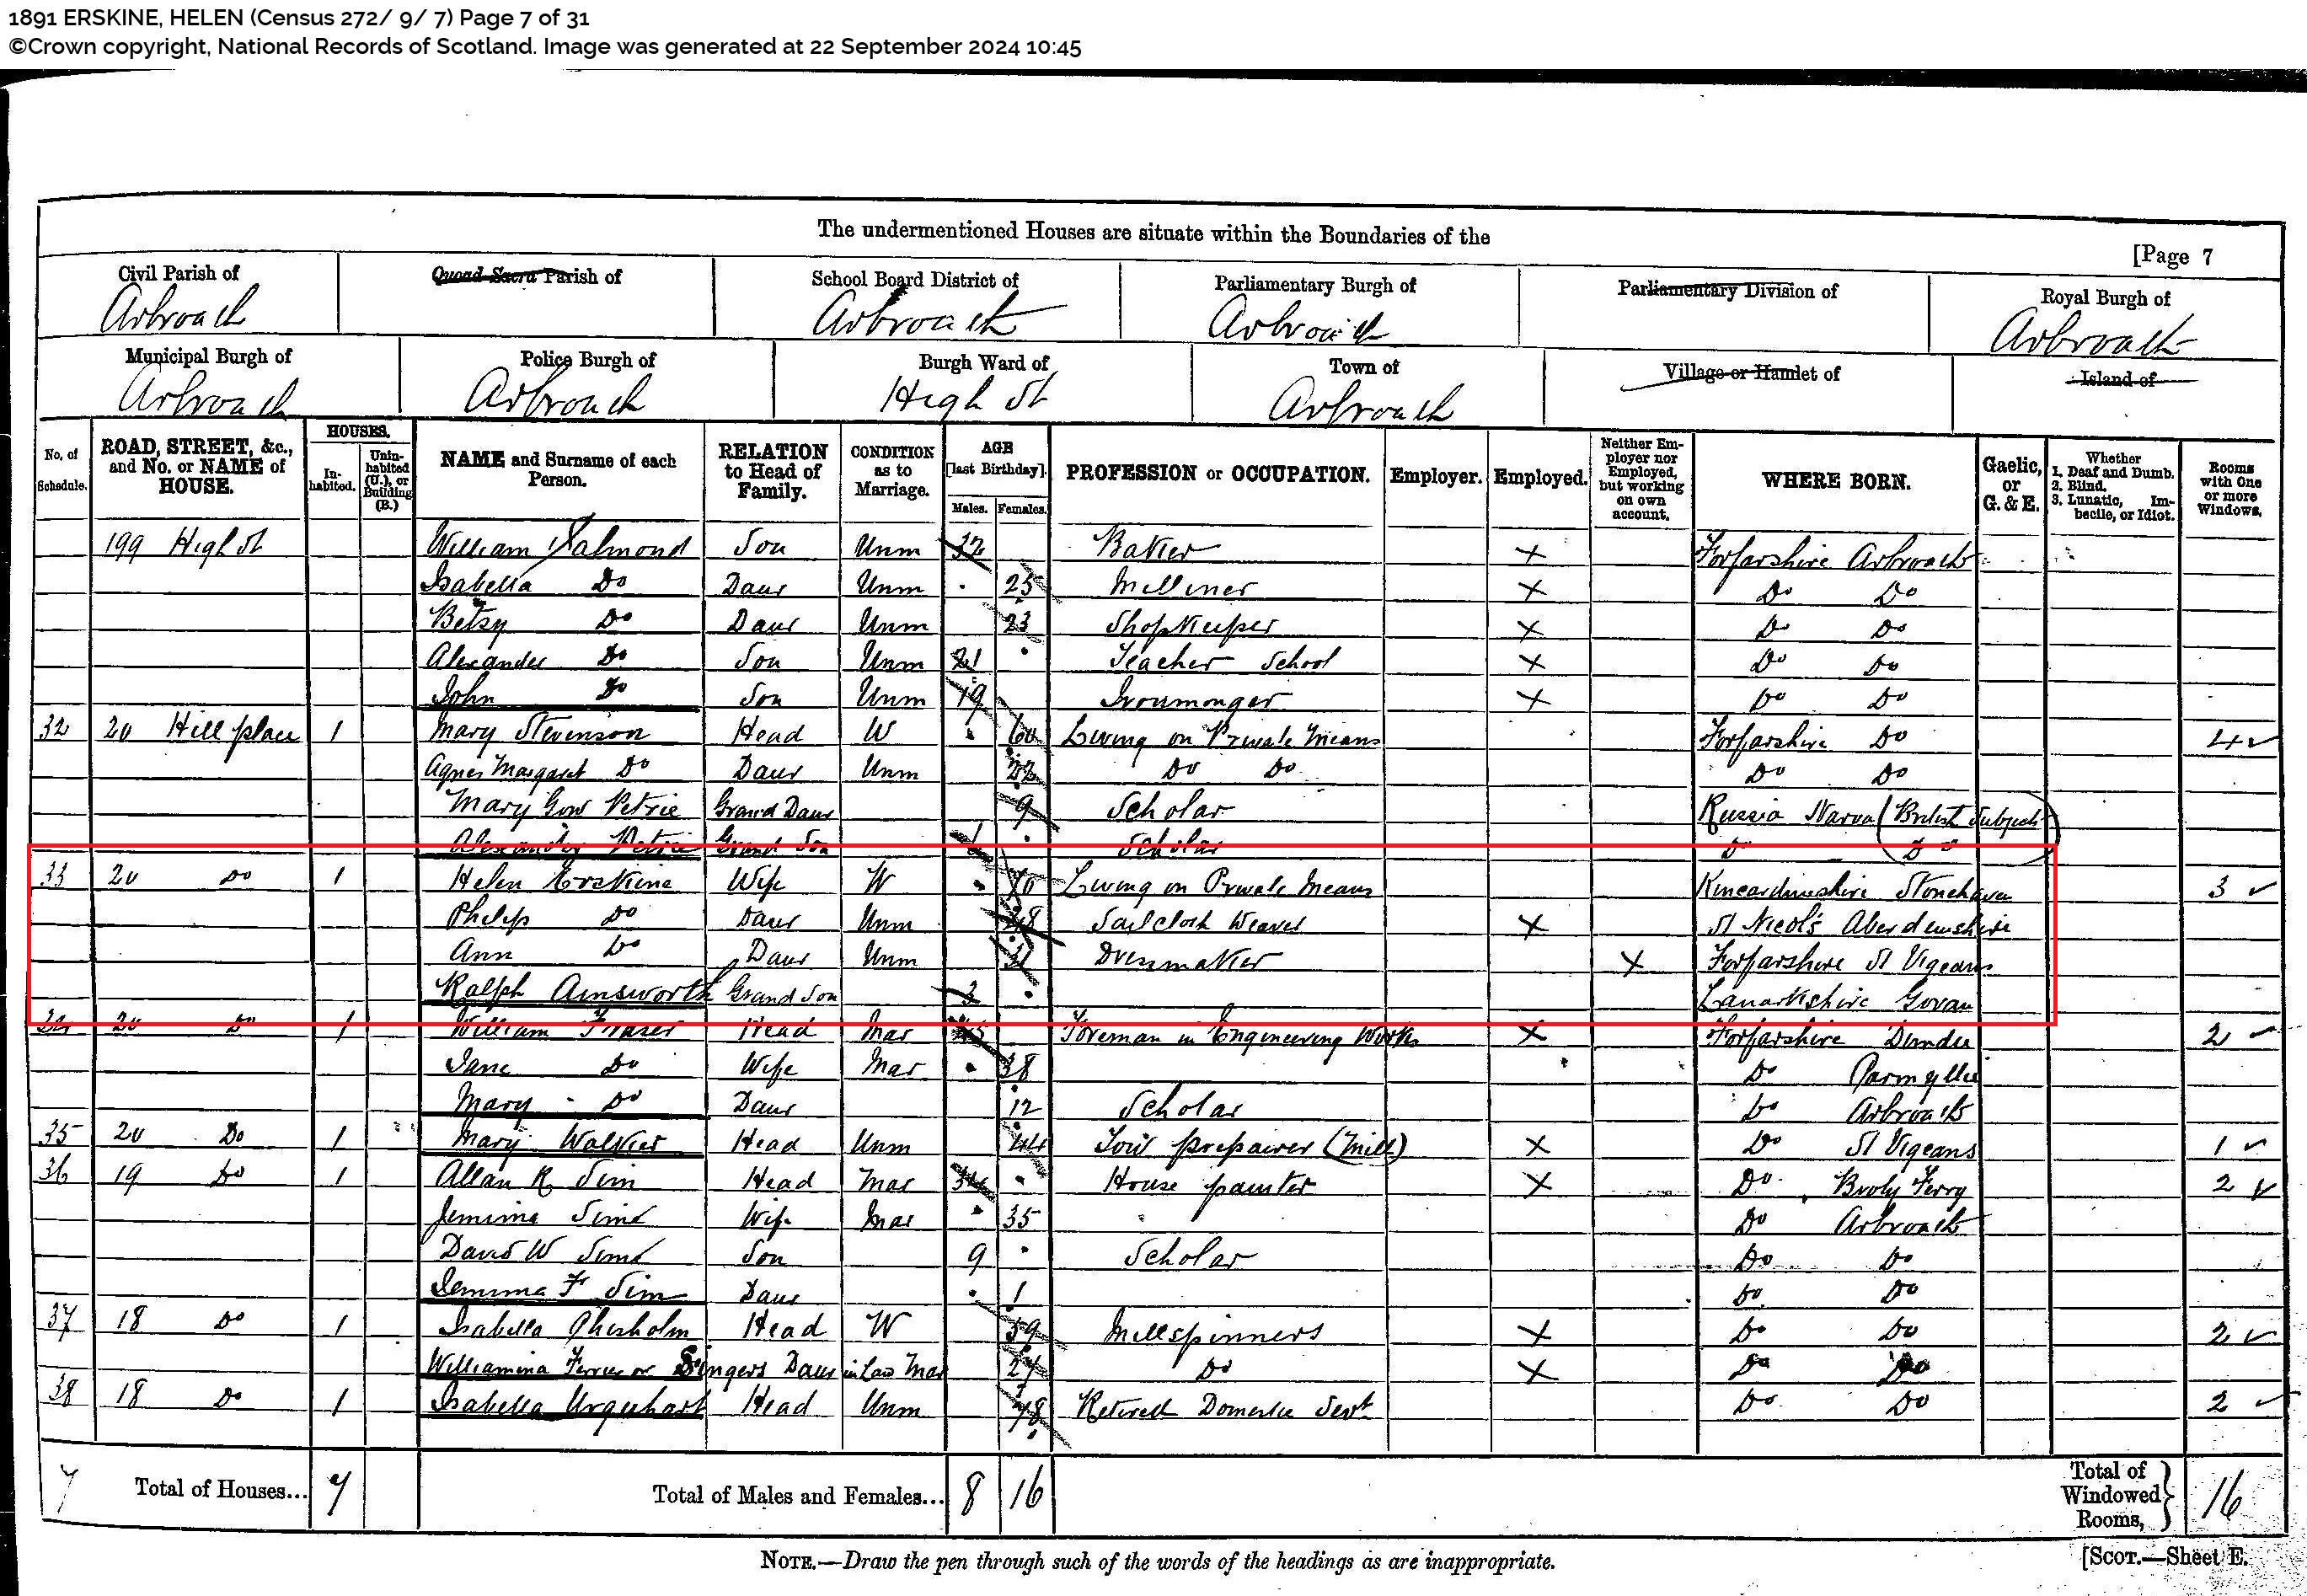 1891 ERSKINE, HELEN (Census 272/ 9/ 7) Page 7 of 31
©Crown copyright, National Records of Scotland. Image was generated at 22 September 2024 10:45
The undermentioned Houses are situate within the Boundaries of the
[Page 7
Civil Parish of Quoad Sacra Parish of School Board District of Parliamentary Burgh of Parliamentary Division of Royal Burgh of
Arbroath Arbroath Arbroath Arbroath
Municipal Burgh of Police Burgh of Burgh Ward of Town of Village or Hamlet of Island of
Arbroath Arbroath High St Arbroath
No. of Schedule. ROAD, STREET, &c., and No. or NAME of HOUSE. HOUSES. Inhabited. Uninhabited (U.), or Building (B.) NAME and Surname of each Person. RELATION to Head of Family. CONDITION as to Marriage. AGE [last Birthday]. Males. Females. PROFESSION or OCCUPATION. Employer. Employed. Neither Employer nor Employed, but working on own account. WHERE BORN. Gaelic, or G. & E. Whether 1. Deaf and Dumb. 2. Blind. 3. Lunatic, Imbecile, or Idiot. Rooms with One or more Windows.
199 High St William Salmond Son Unm 32 Baker X Forfarshire Arbroath
Isabella Do Daur Unm 25 Milliner X Do Do
Betsy Do Daur Unm 23 Shopkeeper X Do Do
Alexander Do Son Unm 21 Teacher School X Do Do
John Do Son Unm 19 Ironmonger X Do Do
32 20 Hill place 1 Mary Stevenson Head W 60 Living on Private Means Forfarshire Do 4
Agnes Margaret Do Daur Unm 22 Do Do Do Do
Mary Gow Petrie Grand Daur 9 Scholar Russia Narva (British Subject)
Alexander Petrie Grand Son Scholar Do Do
33 20 Do 1 Helen Erskine Wife W 70 Living on Private Means Kincardineshire Stonehaven 3
Philip Do Daur Unm Sailcloth Weaver X St Nicol's Aberdeenshire
Ann Do Daur Unm 31 Dressmaker X Forfarshire St Vigeans
Ralph Ainsworth Grand Son 3 Lanarkshire Govan
34 20 Do 1 William Fraser Head Mar Foreman in Engineering Works X Forfarshire Dundee 2
Jane Do Wife Mar 38 Do Carmyllie
Mary Do Daur 12 Scholar Do Arbroath
35 20 Do 1 Mary Walker Head Unm 44 Tow preparer (Mill) X Do St Vigeans 1
36 19 Do 1 Allan R Sim Head Mar 34 House painter X Do Broty Ferry 2
Jemima Sim Wife Mar 35 Do Arbroath
David W Sim Son 9 Scholar Do Do
Jemima F Sim Daur 1 Do Do
37 18 Do 1 Isabella Chisholm Head W 59 Millspinners X Do Do 2
Williamina Ferrier or Singers Daur in Law Mar 27 Do X Do Do
38 18 Do 1 Isabella Urquhart Head Unm 78 Retired Domestic Servt Do Do 2
7 Total of Houses... 7 Total of Males and Females... 8 16 Total of Windowed Rooms, 16
NOTE.—Draw the pen through such of the words of the headings as are inappropriate.
[SCOT.—Sheet E.